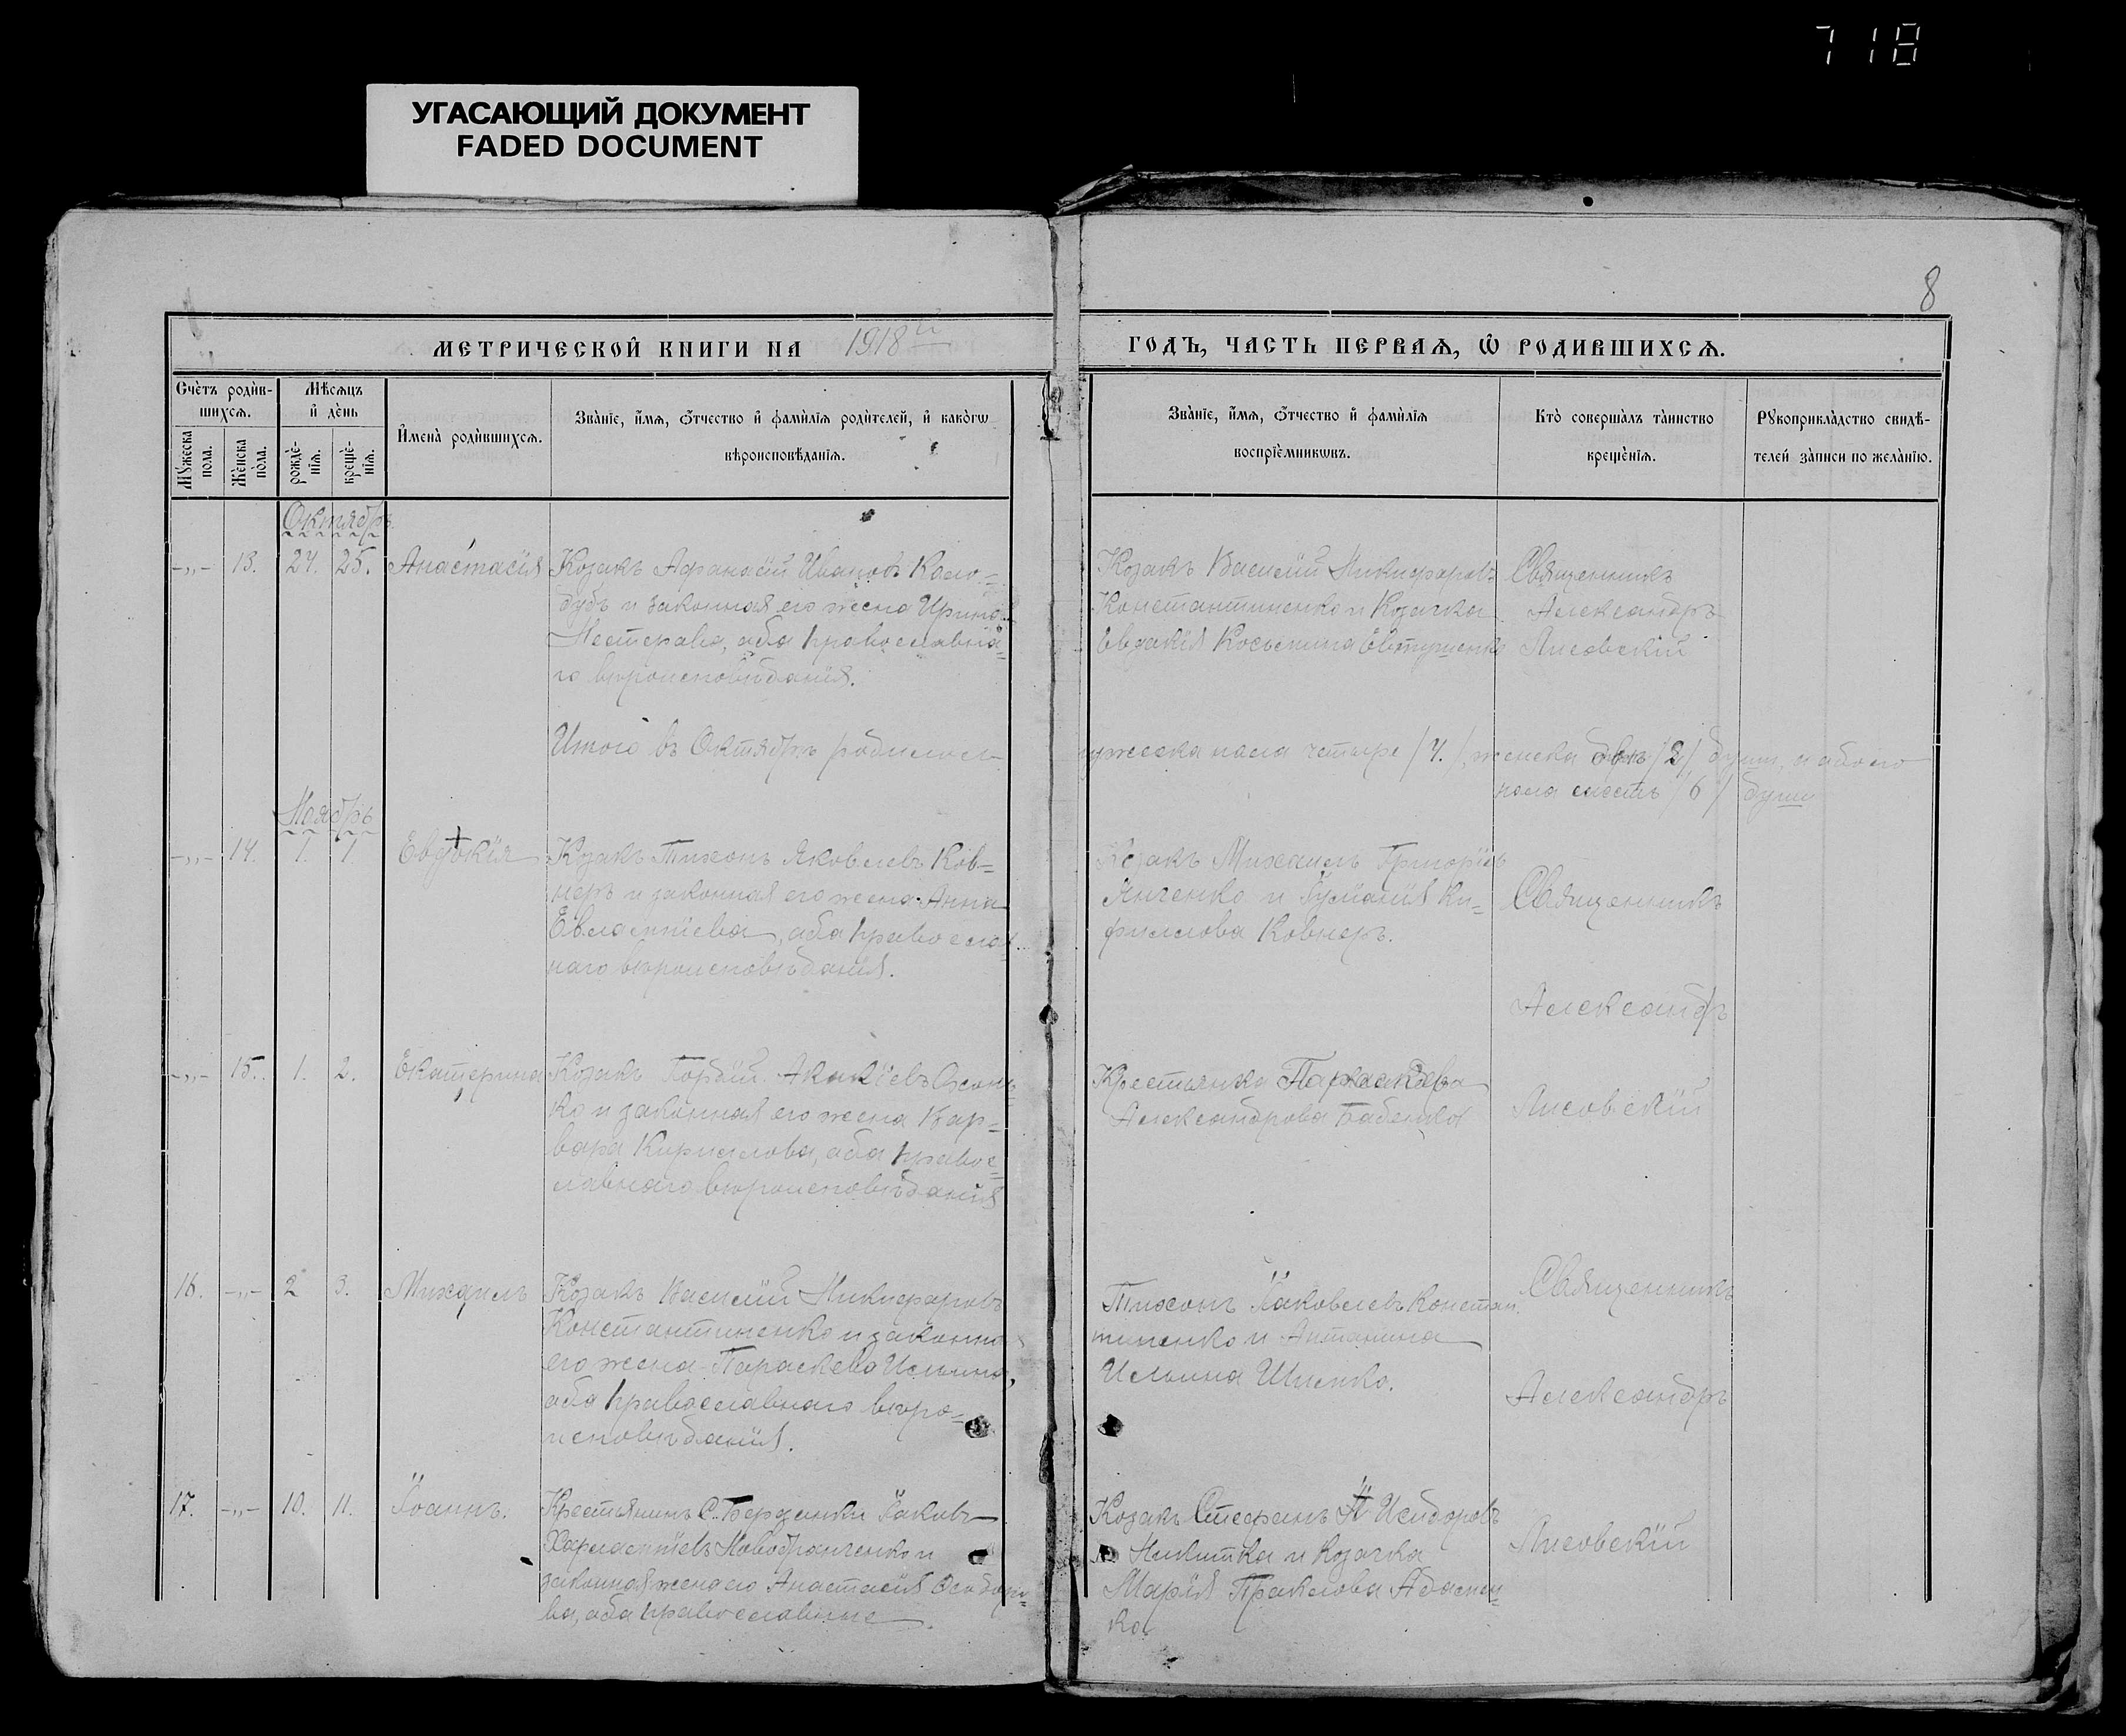 718
УГАСАЮЩИЙ ДОКУМЕНТ
FADED DOCUMENT
8
МЕТРИЧЕСКОЙ КНИГИ НА 1918й
ГОДЪ, ЧАСТЬ ПЕРВАѦ, Ѡ РОДИВШИХСѦ.
Счетъ родив-
шихсѧ.
Мѣсѧцъ
и день
Мужеска
пола.
Женска
пола.
рожде-
нїѧ.
креще-
нїѧ.
Имена родившихсѧ.
Званїе, имѧ, ѻтчество и фамилїѧ родителей, и какогѡ
вѣроисповѣданїѧ.
Званїе, имѧ, ѻтчество и фамилїѧ
воспрїемникѡвъ.
Кто совершалъ таинство
крещенїѧ.
Рукоприкладство свидѣ-
телей записи по желанїю.
Октябрь
-„- 13. 24. 25. Анастасія
Козакъ Афанасій Ивановъ
дубъ и законная его жена Ирина
Нестерова, оба православна-
го вѣроисповѣданія.
Козакъ Василій Никифоровъ
Константиненко и Козачка
Евдокія Косьмина Евтушенко
Священникъ
Александръ
Лисовскій
Итого въ Октябрѣ родилось
мужеска пола четыре /4./, женска двѣ /2/ души, а обоего
пола шесть /6/ душъ
Ноябрь
-„- 14. 1. 1. Евдокія
Козакъ Тихонъ Яковлевъ Ков-
неръ и законная его жена Анна
Евлампіева, оба православ-
наго вѣроисповѣданія.
Козакъ Михаилъ Григоріевъ
Янченко и Ки-
риллова Ковнеръ.
Священникъ
Александръ
Лисовскій
-„- 15. 1. 2. Екатерина
Козакъ Гордій Акакіевъ
ко и законная его жена Вар-
вара Кириллова, оба правос-
лавнаго вѣроисповѣданія
Крестьянка Параскева
Александрова Бабенко
16. -„- 2 3. Михаилъ
Козакъ Василій Никифоровъ
Константиненко и законная
его жена Параскева Ильина,
оба православнаго вѣро-
исповѣданія.
Тихонъ Іаковлевъ Констан-
тиненко и Антонина
Ильина Шиенко.
Священникъ
Александръ
Лисовскій
17. -„- 10. 11. Іоаннъ.
Крестьянинъ С. Іаковъ
Харлампіевъ и
законная жена его Анастасія Ѳеодоро-
ва, оба православные.
Козакъ Стефанъ Исидоровъ
Никитка и Козачка
Марія Адамен-
ко